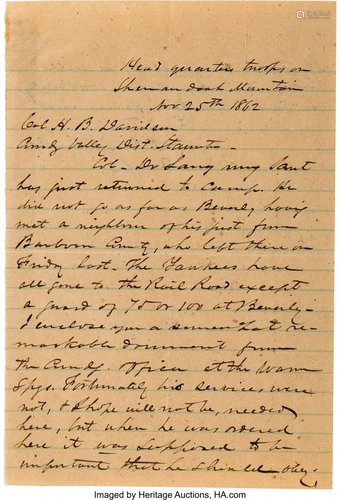 Head quarters troops on
Shenandoah Mountain
Nov 25th 1862
Col H. B. Davidson
Comdg Valley Dist. Staunton
Col - Dr Lang my Scout
has just returned to Camp. He
did not go as far as Beverly, having
met a neighbor of his just from
Barbour County, who left there on
Friday last. The Yankees have
all gone to the Rail Road except
a guard of 75 or 100 at Beverly -
I enclose you a somewhat re-
markable document from
the Comdg. Officer at the Warm
Spgs. Fortunately his services were
not, & I hope will not be, needed
here, but when he was ordered
here it was supposed to be
important that he should obey.
Imaged by Heritage Auctions, HA.com